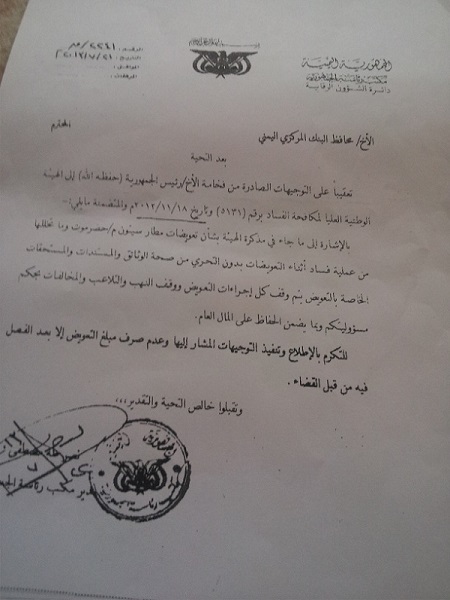 الجمهورية اليمنية
مكتب رئاسة الجمهورية
دائرة الشؤون الرقابية
الرقم:
التاريخ:
الموافق:
المرفقات:
الأخ/ محافظ البنك المركزي اليمني المحترم
بعد التحية
تعقيباً على التوجيهات الصادرة من فخامة الأخ/رئيس الجمهورية (حفظه الله) إلى الهيئة
الوطنية العليا لمكافحة الفساد برقم (٥١٣١) وتاريخ ٢٠١٢/١١/١٨م والمتضمنة مايلي:-
بالإشارة إلى ما جاء في مذكرة الهيئة بشأن تعويضات مطار سيئون م/حضرموت وما تخللها
من عملية فساد أثناء التعويضات بدون التحري من صحة الوثائق والمستندات والمستحقات
الخاصة بالتعويض يتم وقف كل إجراءات التعويض ووقف النهب والتلاعب والمخالفات بحكم
مسؤوليتكم وبما يضمن الحفاظ على المال العام.
للتكرم بالإطلاع وتنفيذ التوجيهات المشار إليها وعدم صرف مبلغ التعويض إلا بعد الفصل
فيه من قبل القضاء .
وتقبلوا خالص التحية والتقدير،،،
مدير مكتب رئاسة